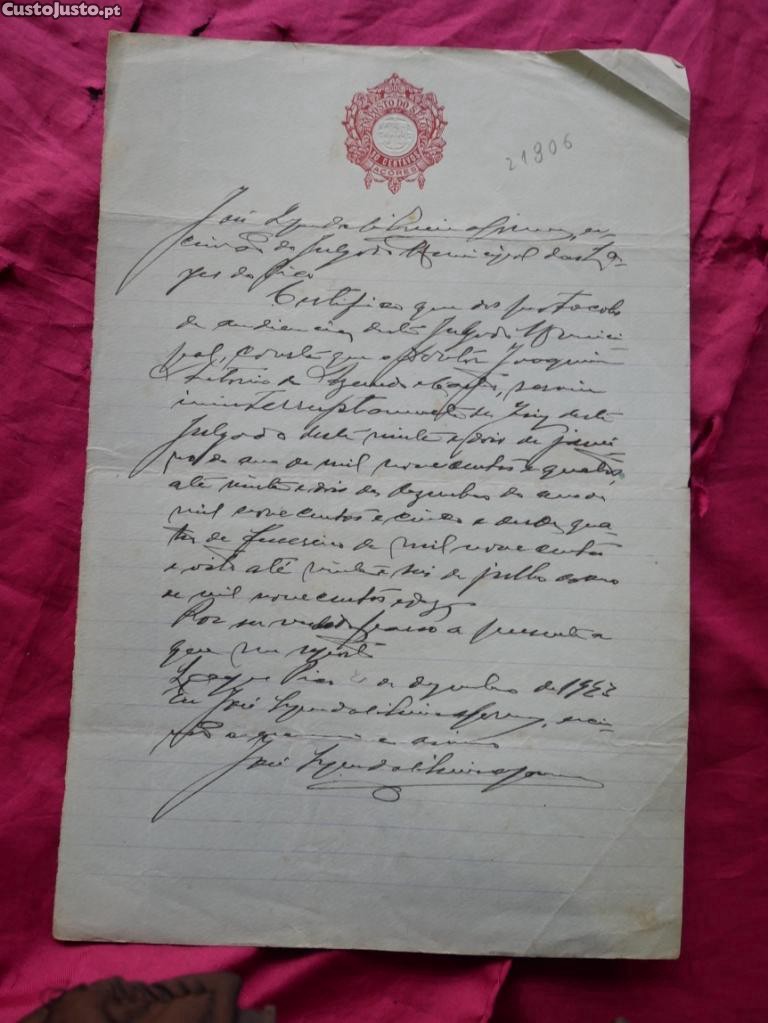 CustoJusto.pt
IMPOSTO DO SELO
CENTAVOS
AÇORES
21906
José de Oliveira es-
crivão do Julgado Municipal das La-
ges do Pico
Certifico que dos protocolos
de audiencias deste Julgado Munici-
pal, consta que o Doutor Joaquim
Antonio de Azevedo e Castro, serviu
ininterruptamente de Juiz deste
Julgado desde vinte e dois de janei-
ro do ano de mil novecentos e quatro,
até vinte e dois de dezembro do ano de
mil novecentos e cinco e desde qua-
tro de fevereiro de mil novecentos
e oito até vinte e seis de julho
de mil novecentos e dez
Por ser verdade passo a presente a
que me reporto
Lages Pico de dezembro de 192
Eu José de Oliveira escri-
vão a escrevi e assino
José de Oliveira